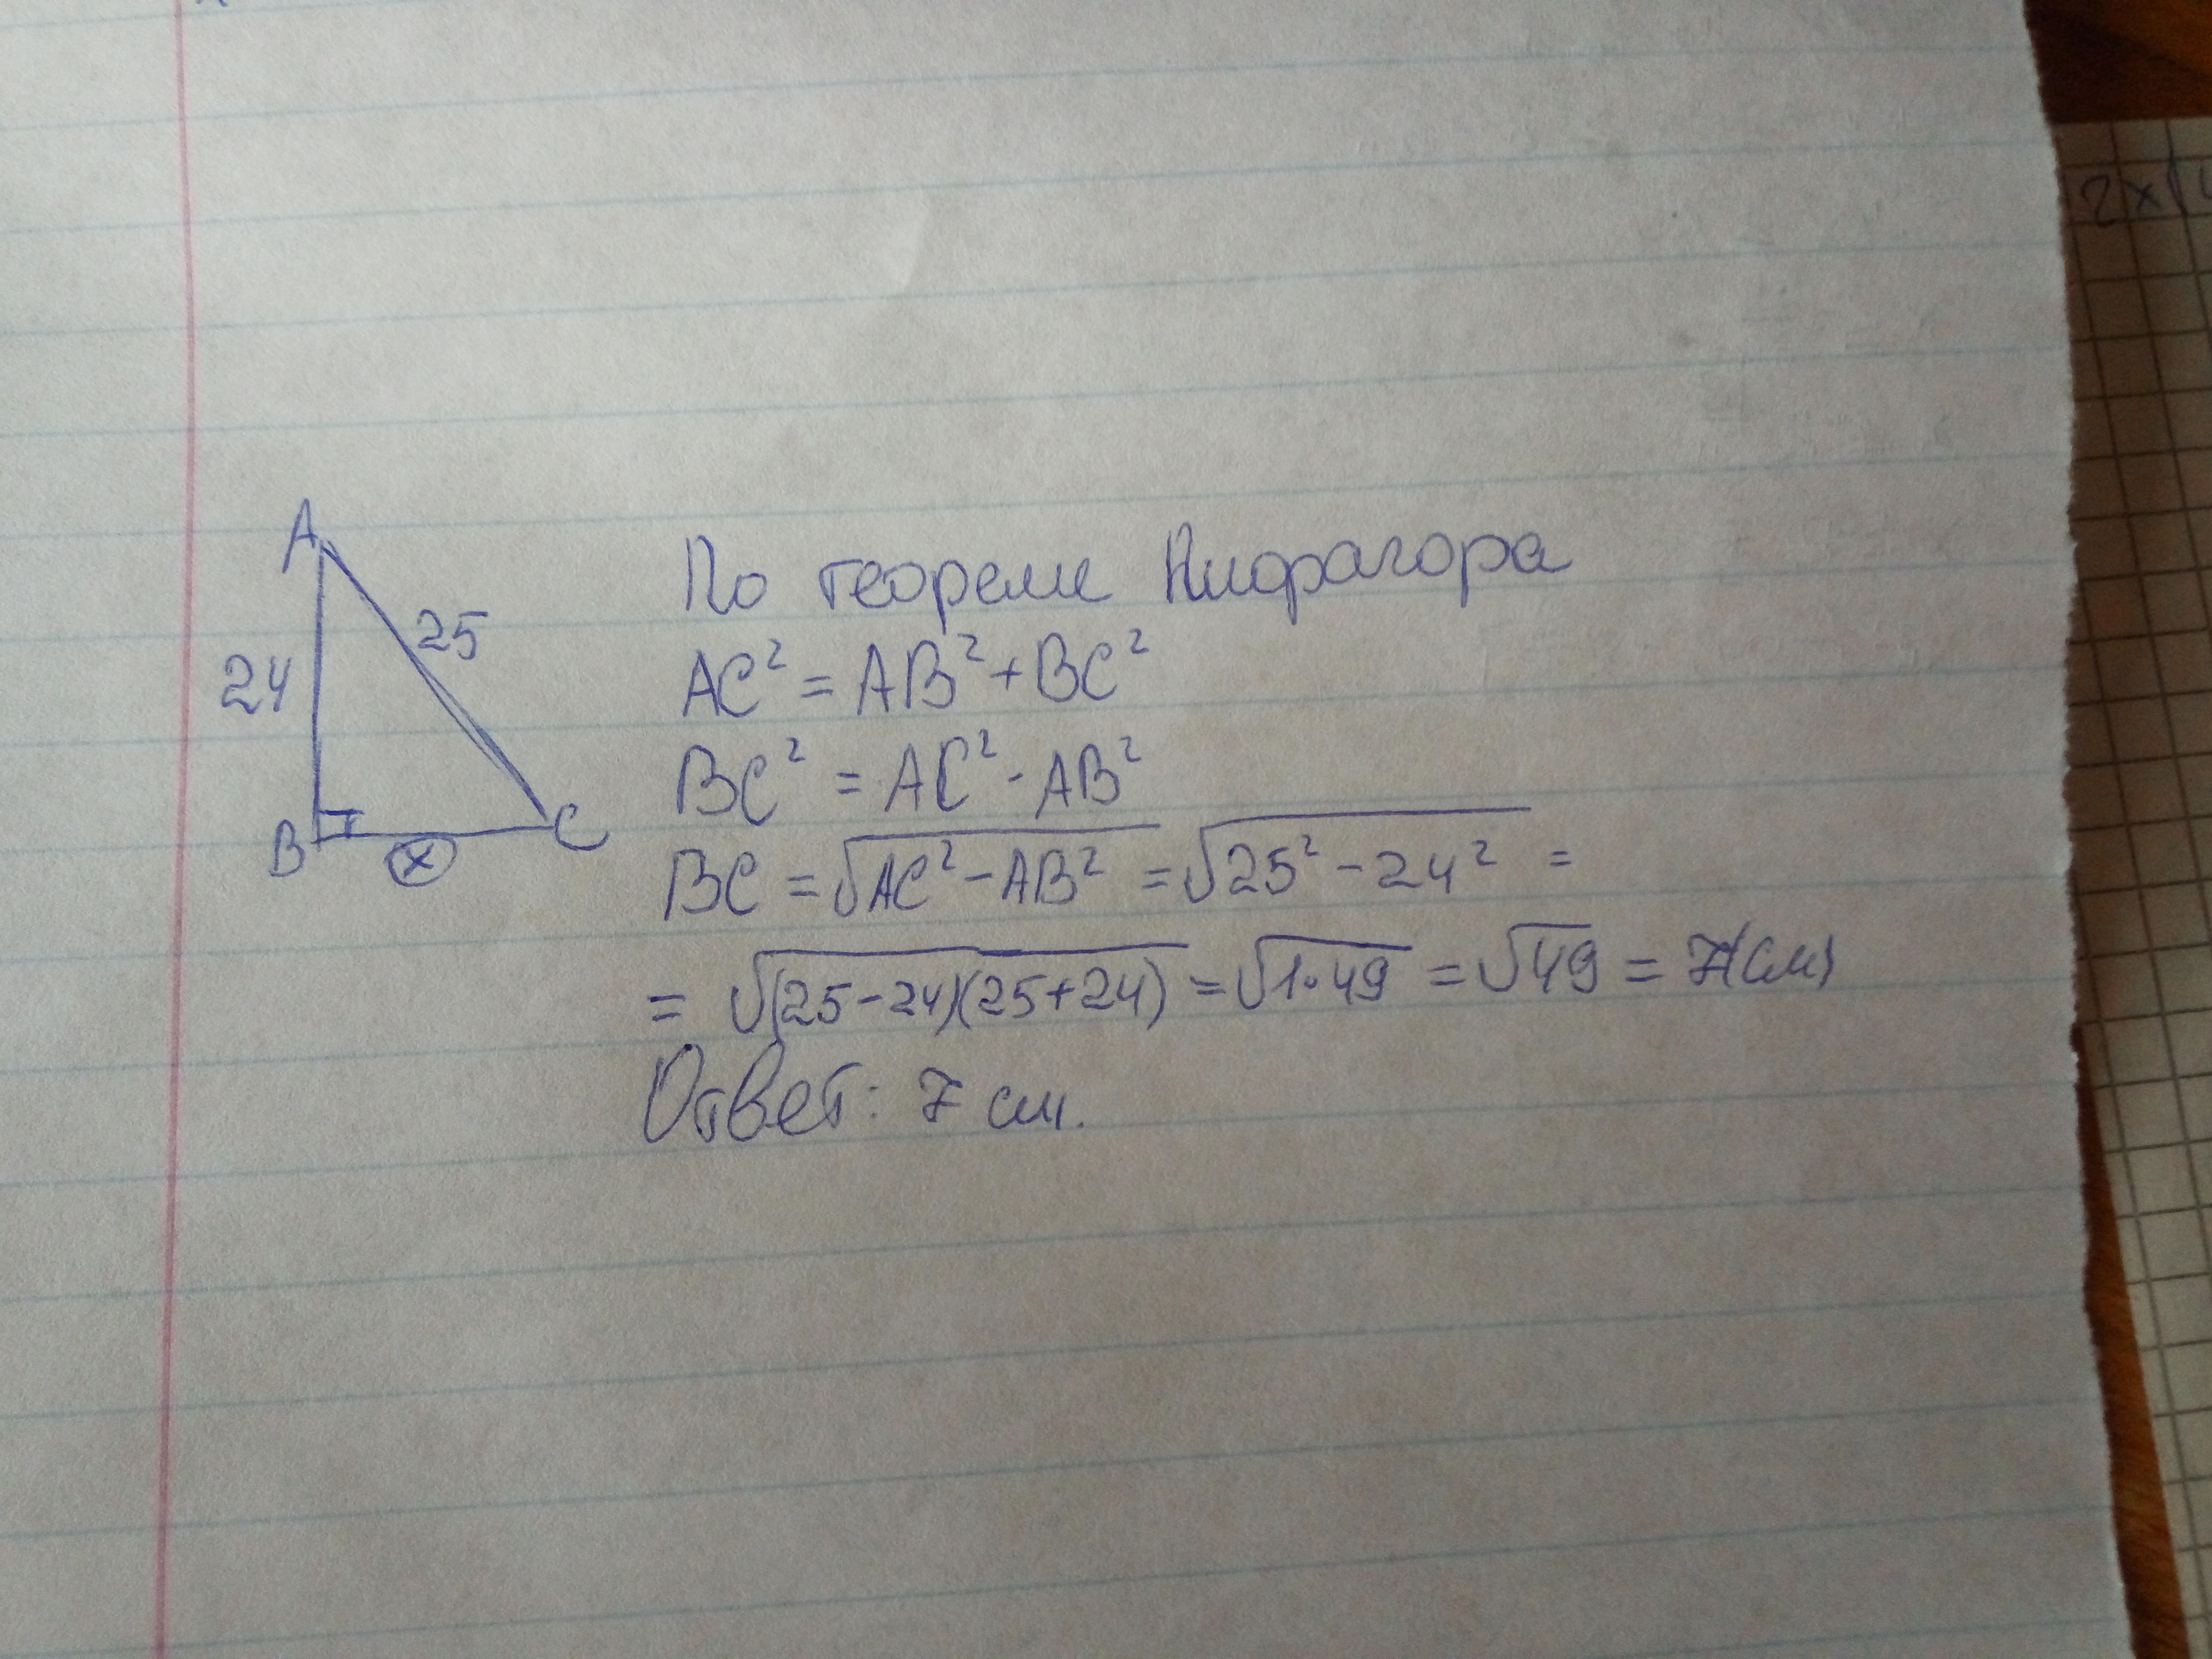 A
25
24
B
x
C
По теореме Пифагора
AC² = AB² + BC²
BC² = AC² - AB²
BC = √AC² - AB² = √25² - 24² =
= √(25-24)(25+24) = √1·49 = √49 = 7(см)
Ответ: 7 см.
2x